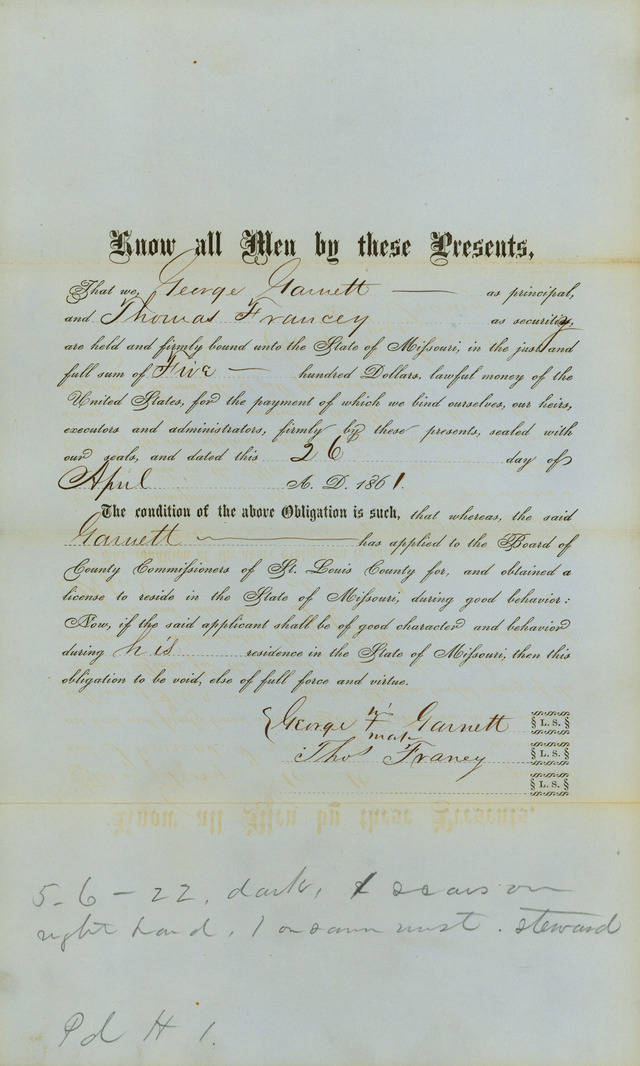 Know all Men by these Presents,
That we, George Garnett — as principal,
and Thomas Francey as security,
are held and firmly bound unto the State of Missouri, in the just and
full sum of Five — hundred Dollars, lawful money of the
United States, for the payment of which we bind ourselves, our heirs,
executors and administrators, firmly by these presents, sealed with
our seals, and dated this 26 day of
April A. D. 1861.
The condition of the above Obligation is such, that whereas, the said
Garnett — has applied to the Board of
County Commissioners of St. Louis County for, and obtained a
license to reside in the State of Missouri, during good behavior:
Now, if the said applicant shall be of good character and behavior
during his residence in the State of Missouri, then this
obligation to be void, else of full force and virtue.
his
George + Garnett L. S.
mark
Thos Franey L. S.
L. S.
5-6-22, dark, scars on
right hand, 1 on same wrist. steward
Pd H 1.